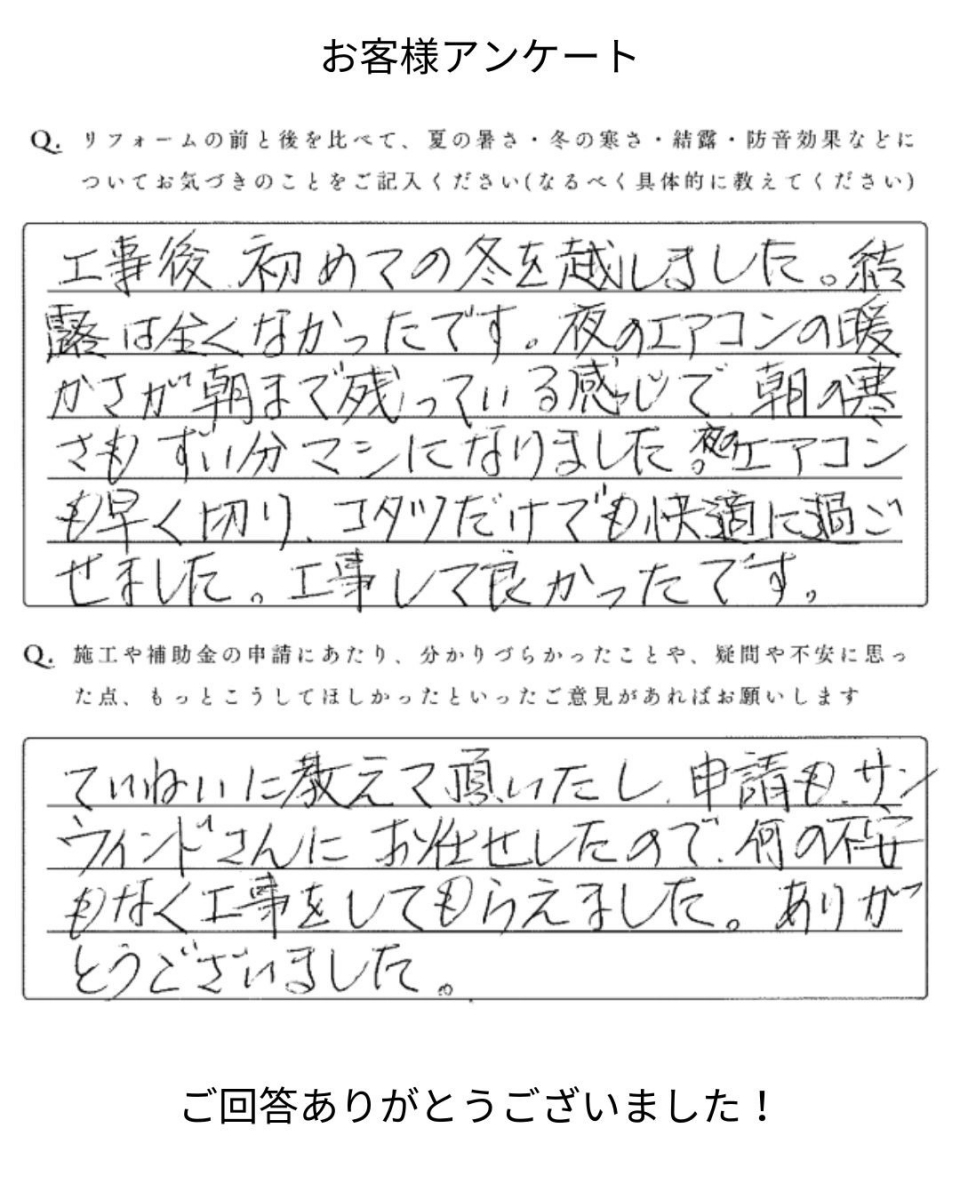 お客様アンケート
Q. リフォームの前と後を比べて、夏の暑さ・冬の寒さ・結露・防音効果などに
ついてお気づきのことをご記入ください(なるべく具体的に教えてください)
工事後、初めての冬を越しました。結
露は全くなかったです。夜のエアコンの暖
かさが朝まで残っている感じで、朝の寒
さもずい分マシになりました。夜のエアコン
も早く切り、コタツだけでも快適に過ご
せました。工事して良かったです。
Q. 施工や補助金の申請にあたり、分かりづらかったことや、疑問や不安に思っ
た点、もっとこうしてほしかったといったご意見があればお願いします
ていねいに教えて頂いたし、申請も、サン
ウインドさんにお任せしたので、何の不安
もなく工事をしてもらえました。ありが
とうございました。
ご回答ありがとうございました！